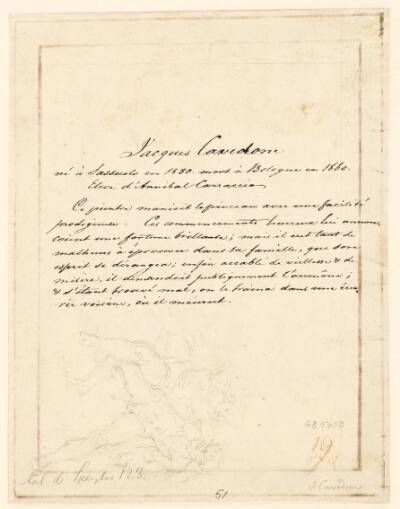 Jacques Cavedone
né à Sassuolo en 1580. mort à Bologne en 1660.
Eleve d'Annibal Carraccio
Ce peintre manioit le pinceau avec une facilité
prodigieuse. Ces commencements heureux lui annon-
caient une fortune brillante; mais il eut tant de
malheurs à éprouver dans sa famille, que son
esprit se dérangea; enfin accablé de viellesse & de
misere, il demandoit publiquement l'aumône;
& s'étant trouvé mal, on le traina dans une écu-
rie voisine, où il mourut.
GB5050
19
de 123.
J. Cavedone
51